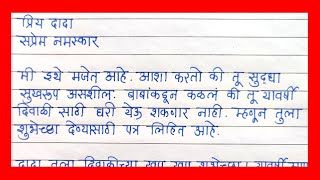 प्रिय दादा
सप्रेम नमस्कार
मी इथे मजेत आहे. आशा करतो की तू सुद्धा
सुखरूप असशील. बाबांकडून कळलं की तू यावर्षी
दिवाळी साठी घरी येऊ शकणार नाही. म्हणून तुला
शुभेच्छा देण्यासाठी पत्र लिहित आहे.
दादा तुला दिवाळीच्या खूप खूप शुभेच्छा। यावर्षी